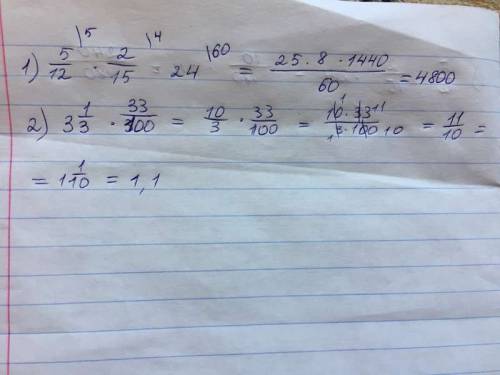 1) 5/12 \5 · 2/15 \4 · 24 \60 = 25 · 8 · 1440 / 60 = 4800
2) 3 1/3 · 33/100 = 10/3 · 33/100 = 10 · 33 / 3 · 100 = 11/10 =
= 1 1/10 = 1,1